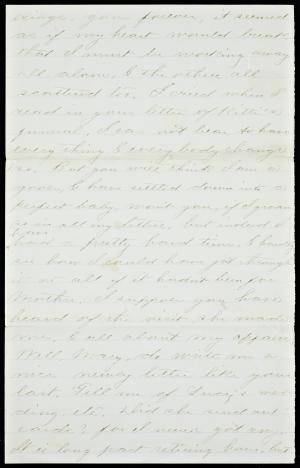 gone forever, it seemed
as if my heart would break
that I must be working away
all alone, & the others all
scattered too. I cried when I
read in your letter of Kitti's
funeral. I can not bear to have
every thing & every body change
so. But you will think I am a
goose, & have settled down into a
perfect baby, won't you, if I groan
so in all my letters, but indeed I
had a pretty hard time. I hardly
see how I could have got through
it at all if it hadn't been for
Mother. I suppose you have
heard of the visit she made
me, & all about my affairs.
Well, Mary, do write me a
nice newsy letter like your
last. Tell me of Lucy's wed-
ding, etc. Did she send out
cards? for I never got one.
It is long past retiring hour, but